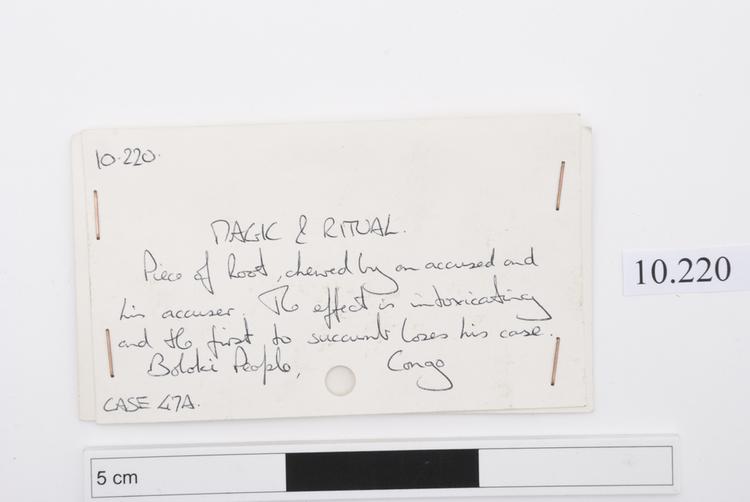 10.220.
MAGIC & RITUAL.
Piece of Root, chewed by an accused and
his accuser. The effect is intoxicating
and the first to succumb loses his case.
Boloki People, Congo
CASE 47A.
10.220
5 cm